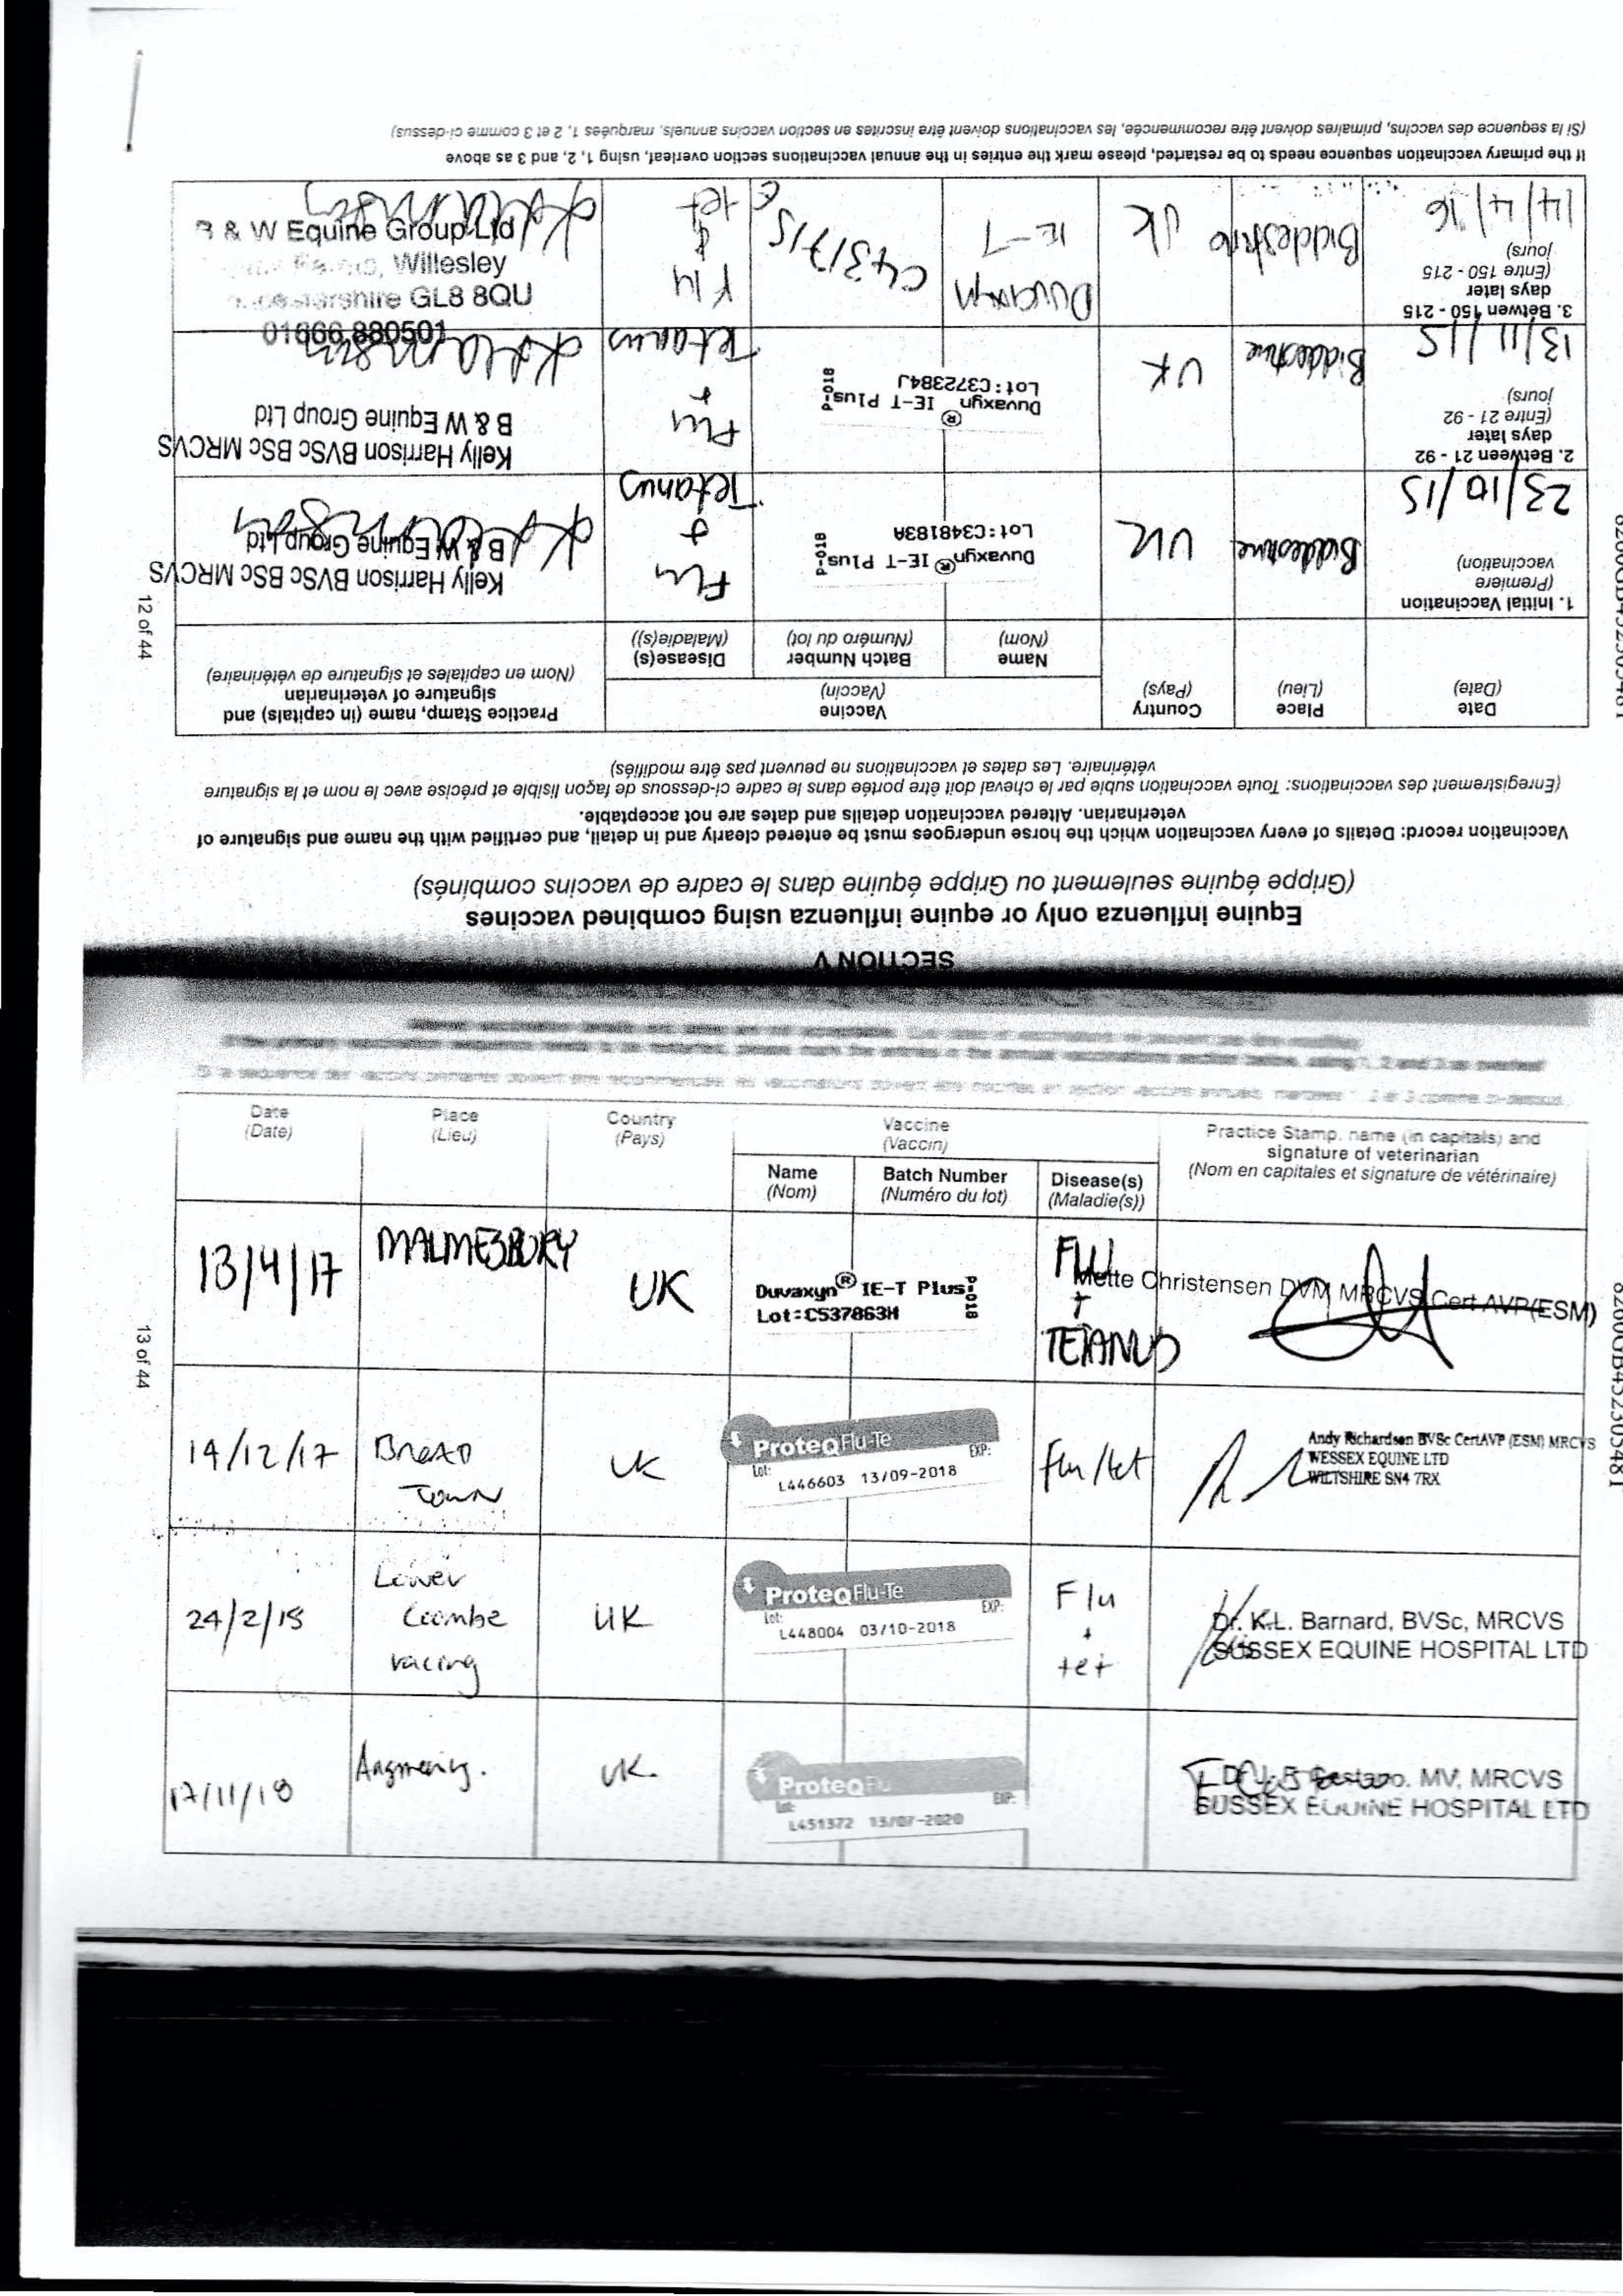 SECTION V
Equine influenza only or equine influenza using combined vaccines
(Grippe équine seulement ou Grippe équine dans le cadre de vaccins combinés)
Vaccination record: Details of every vaccination which the horse undergoes must be entered clearly and in detail, and certified with the name and signature of
veterinarian. Altered vaccination details and dates are not acceptable.
(Enregistrement des vaccinations: Toute vaccination subie par le cheval doit être portée dans le cadre ci-dessous de façon lisible et précise avec le nom et la signature
vétérinaire. Les dates et vaccinations ne peuvent pas être modifiés)
Date
(Date)
Place
(Lieu)
Country
(Pays)
Vaccine
(Vaccin)
Name
(Nom)
Batch Number
(Numéro du lot)
Disease(s)
(Maladie(s))
Practice Stamp, name (in capitals) and
signature of veterinarian
(Nom en capitales et signature de vétérinaire)
1. Initial Vaccination
(Première
vaccination)
23/10/15
Biddestone
UK
Duvaxyn® IE-T Plus
Lot:C348183A
P-018
Flu
+
Tetanus
Kelly Harrison BVSc BSc MRCVS
B & W Equine Group Ltd
2. Between 21 - 92
days later
(Entre 21 - 92
jours)
13/11/15
Biddestone
UK
Duvaxyn® IE-T Plus
Lot:C372384J
P-018
Flu
+
Tetanus
Kelly Harrison BVSc BSc MRCVS
B & W Equine Group Ltd
3. Betwen 150 - 215
days later
(Entre 150 - 215
jours)
14/4/16
Biddestone
UK
Duvaxyn
IE-T
Flu
&
Tet
B & W Equine Group Ltd
Willesley
GL8 8QU
01666 880501
If the primary vaccination sequence needs to be restarted, please mark the entries in the annual vaccinations section overleaf, using 1, 2, and 3 as above
(Si la sequence des vaccins, primaires doivent être recommencée, les vaccinations doivent être inscrites en section vaccins annuels. marquées 1, 2 et 3 comme ci-dessus)
12 of 44
Date
(Date)
Place
(Lieu)
Country
(Pays)
Vaccine
(Vaccin)
Name
(Nom)
Batch Number
(Numéro du lot)
Disease(s)
(Maladie(s))
Practice Stamp, name (in capitals) and
signature of veterinarian
(Nom en capitales et signature de vétérinaire)
13/4/17
MALMESBURY
UK
Duvaxyn® IE-T Plus
Lot:C537863H
P-018
FLU
+
TETANUS
Mette Christensen DVM MRCVS Cert AVP(ESM)
14/12/17
Broad
Town
UK
ProteqFlu-Te
Lot:
EXP:
L446603 13/09-2018
flu/tet
Andy Richardson BVSc CertAVP (ESM) MRCVS
WESSEX EQUINE LTD
WILTSHIRE SN4 7RX
24/2/18
Lower
Coombe
racing
UK
ProteqFlu-Te
Lot:
EXP:
L448004 03/10-2018
Flu
+
tet
Dr. K.L. Barnard, BVSc, MRCVS
SUSSEX EQUINE HOSPITAL LTD
17/11/18
Angmering.
UK.
ProteqFlu
Lot:
EXP:
L451372 13/07-2020
MV, MRCVS
SUSSEX EQUINE HOSPITAL LTD
13 of 44